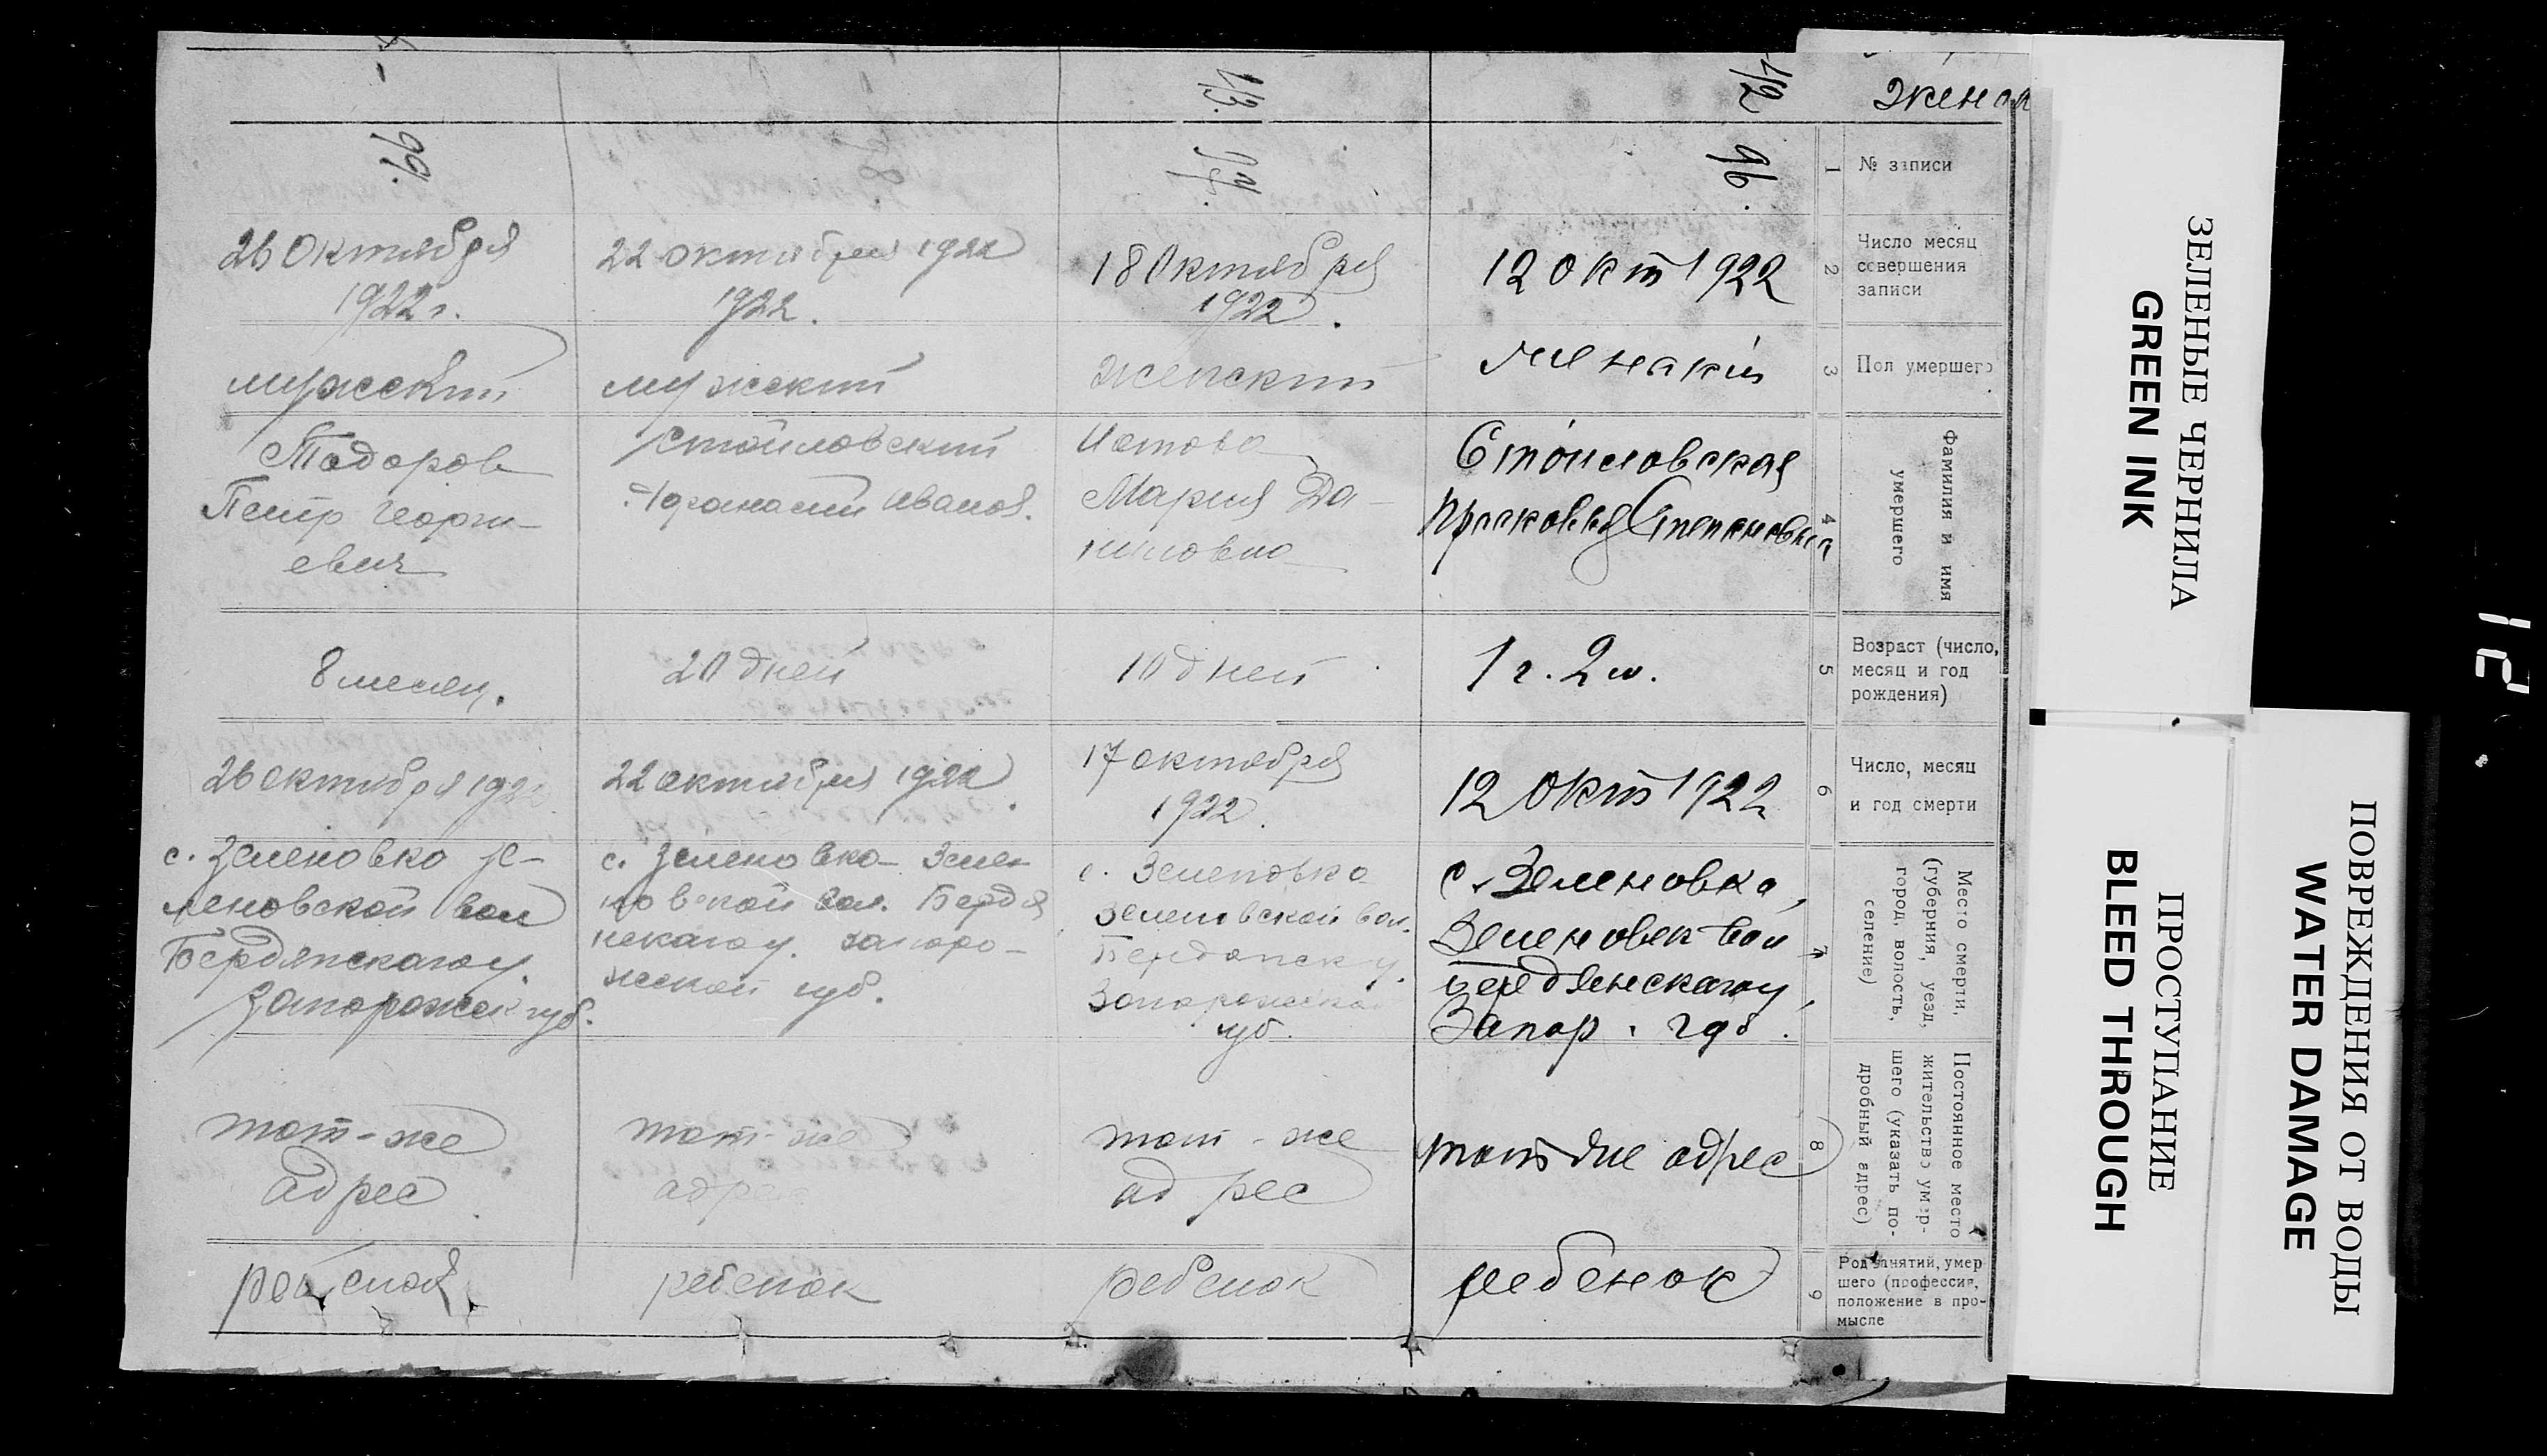 № записи
1
96.
97.
98.
99.
Число месяц
совершения
записи
2
12 Окт 1922
18 Октября
1922.
22 октября 1922
1922.
26 Октября
1922 г.
Пол умершего
3
женский
мужский
мужский
Фамилия и имя
умершего
4
Стоиловская
Степановна
Мария Да-
ниловна
Стоиловский
Афанасий Иванов.
Тодоров
Петр Георги-
евич
Возраст (число,
месяц и год
рождения)
5
1 г. 2 м.
10 дней
20 дней
8 месяц.
Число, месяц
и год смерти
6
12 Окт 1922
17 октября
1922.
22 октября 1922
26 октября 1922
Место смерти,
(губерния, уезд,
город, волость,
селение)
7
с. Зеленовка,
Зеленовск вол
Бердянскаго у,
Запор. губ.
с. Зеленовка
Зеленовской вол.
Бердянск у.
Запорожской
губ.
с. Зеленовка Зеле
новской вол. Бердя
нскаго у. запоро-
жской губ.
с. Зеленовка зе-
леновской вол
Бердянскаго у.
Запорожск губ.
Постоянное место
жительство умер-
шего (указать по-
дробный адрес)
8
тот же адрес
тот-же
адрес
тот-же
адрес
тот-же
адрес
Род занятий, умер
шего (профессия,
положение в про-
мысле
9
ребенок
ребенок
ребенок
ребенок
ЗЕЛЕНЫЕ ЧЕРНИЛА
GREEN INK
ПРОСТУПАНИЕ
BLEED THROUGH
ПОВРЕЖДЕНИЯ ОТ ВОДЫ
WATER DAMAGE
12